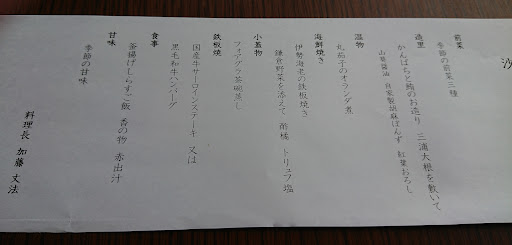 沙
前菜
季節の前菜三種
造里
かんぱちと鮪のお造り 三浦大根を敷いて
山葵醤油 自家製胡麻ぽんず 紅葉おろし
温物
丸茄子のオランダ煮
海鮮焼き
伊勢海老の鉄板焼き
鎌倉野菜を添えて 酢橘 トリュフ塩
小蓋物
フォアグラ茶碗蒸し
鉄板焼
国産牛サーロインステーキ 又は
黒毛和牛ハンバーグ
食事
釜揚げしらすご飯 香の物 赤出汁
甘味
季節の甘味
料理長 加藤 丈法